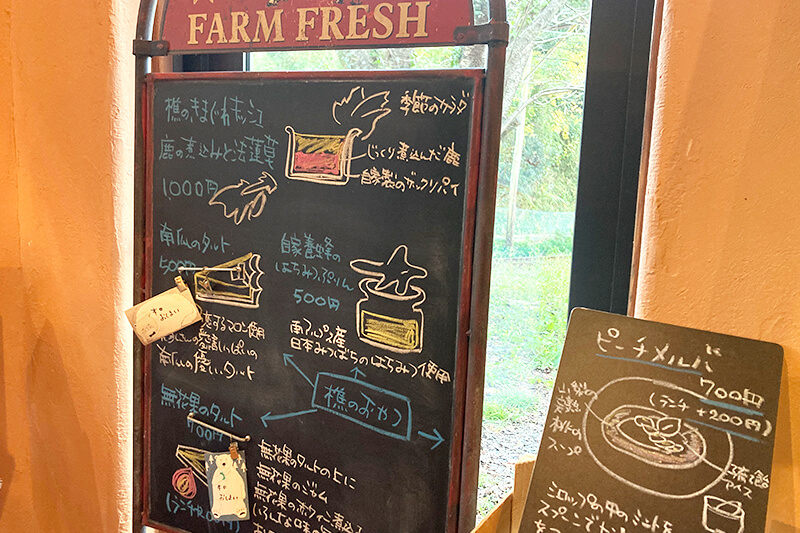 FARM FRESH
樵のきまぐれキッシュ
鹿の煮込みと法蓮草
1,000円
季節のサラダ
じっくり煮込んだ鹿
自家製のザックリパイ
南仏のタルト
500円
自家養蜂の
はちみつぷりん
500円
南アルプス産
日本みつばちのはちみつ使用
するマロン使用
愛情いっぱいの
南仏の優しいタルト
樵のおやつ
無花果のタルト
700円
無花果のタルトの上に
無花果のジャム
無花果の赤ワイン煮込
ピーチメルバ
700円
(ランチ+200円)
山梨の
完熟
桃の
スープ
アイス
シロップの中のミントを
スプーンで